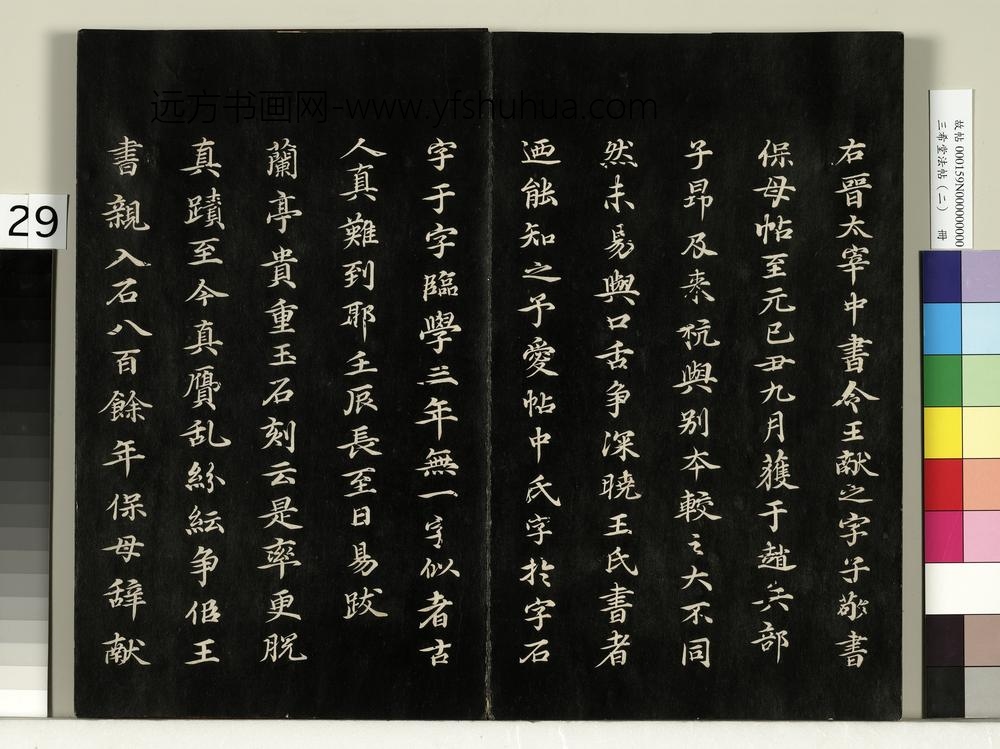 右晋太宰中書令王献之字子敬書
保母帖至元己丑九月獲于趙兵部
子昂及来杭與别本較之大不同
然未易與口舌争深曉王氏書者
迺能知之予愛帖中氏字於字石
字于字臨學三年無一字似者古
人真難到耶壬辰長至日易跋
蘭亭貴重玉石刻云是率更脱
真蹟至今真贋乱絲紜争佀王
書親入石八百餘年保母辞献
远方书画网-www.yfshuhua.com
故帖 000159N000000000
三希堂法帖（二） 冊
29